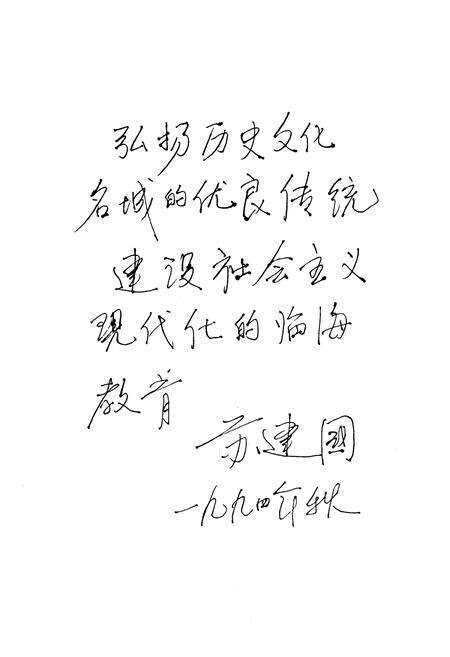 弘扬历史文化
名城的优良传统
建设社会主义
现代化的临海
教育
苏建国
一九九四年秋